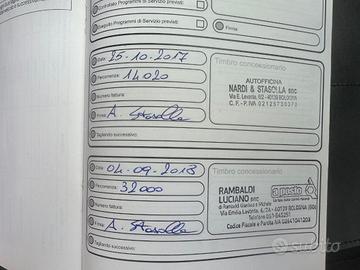 Controllato Programmi di Servizio previsti:
Eseguito Programmi di Servizio previsti:
Firma
Data: 25-10-2017
Percorrenza: 14020
Numero fattura:
Firma: A. Stasolla
Tagliando successivo:
Timbro concessionario
AUTOFFICINA
NARDI & STASOLLA snc
Via E. Levante, 6/2 - 40139 BOLOGNA
C.F. - P.IVA 02125730373
Data: 04-09-2018
Percorrenza: 32000
Numero fattura:
Firma: A. Stasolla
Tagliando successivo:
Timbro concessionario
RAMBALDI
LUCIANO snc
a posto
di Rambaldi Gianluca e Michele
Via Emilia Levante, 6/2A - 40139 BOLOGNA (BO)
Codice Fiscale e Partita IVA
subito